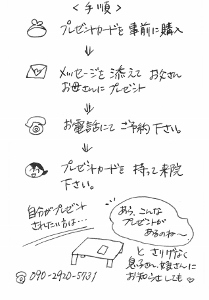 ＜手順＞
プレゼントカードを事前に購入
⇓
メッセージを添えて お父さん
お母さんにプレゼント
⇓
お電話にて ご予約下さい。
⇓
プレゼントカードを持って来院
下さい。
自分がプレゼント
されたい方は…
あら、こんな
プレゼントが
あるのね〜
と さりげなく
息子さん、娘さんに
お知らせしても♡
☎090-2920-5731